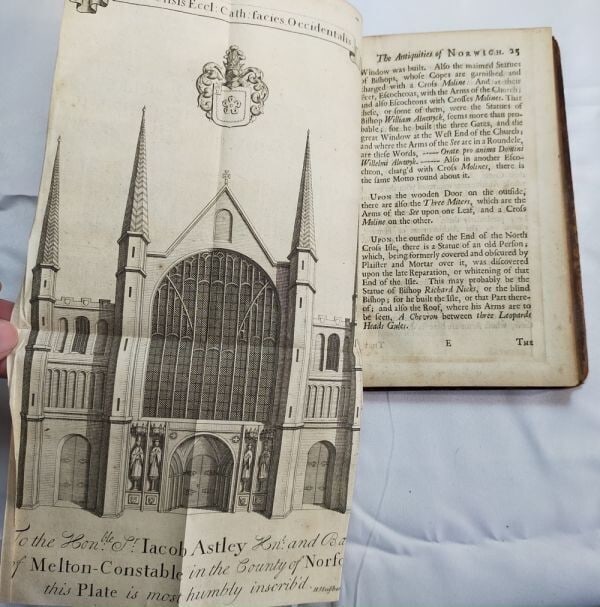 nsis Eccl: Cath: facies Occidentalis
To the Hon.ble Sr. Iacob Astley Knt. and Ba
of Melton-Constable in the County of Norfo
this Plate is most humbly inscrib'd.
The Antiquities of NORWICH. 25
Window was built. Also the maimed Statues
of Bishops, whose Copes are garnished and
charged with a Cross Moline: And at their
Feet, Escocheons, with the Arms of the Church;
and also Escocheons with Crosses Moline. That
these, or some of them, were the Statues of
Bishop William Alnwyck, seems more than pro-
bable; for he built the three Gates, and the
great Window at the West End of the Church;
and where the Arms of the See are in a Roundele,
are these Words, —— Orate pro anima Domini
Willelmi Alnwyk. —— Also in another Esco-
cheon, charg'd with Cross Molines, there is
the same Motto round about it.
UPON the wooden Door on the outside,
there are also the Three Miters, which are the
Arms of the See upon one Leaf, and a Cross
Moline on the other.
UPON the outside of the End of the North
Cross Isle, there is a Statue of an old Person;
which, being formerly covered and obscured by
Plaister and Mortar over it, was discovered
upon the late Reparation, or whitening of that
End of the Isle. This may probably be the
Statue of Bishop Richard Nicks, or the blind
Bishop; for he built the Isle, or that Part there-
of; and also the Roof, where his Arms are to
be seen, A Chevron between three Leopards
Heads Gules.
E THE